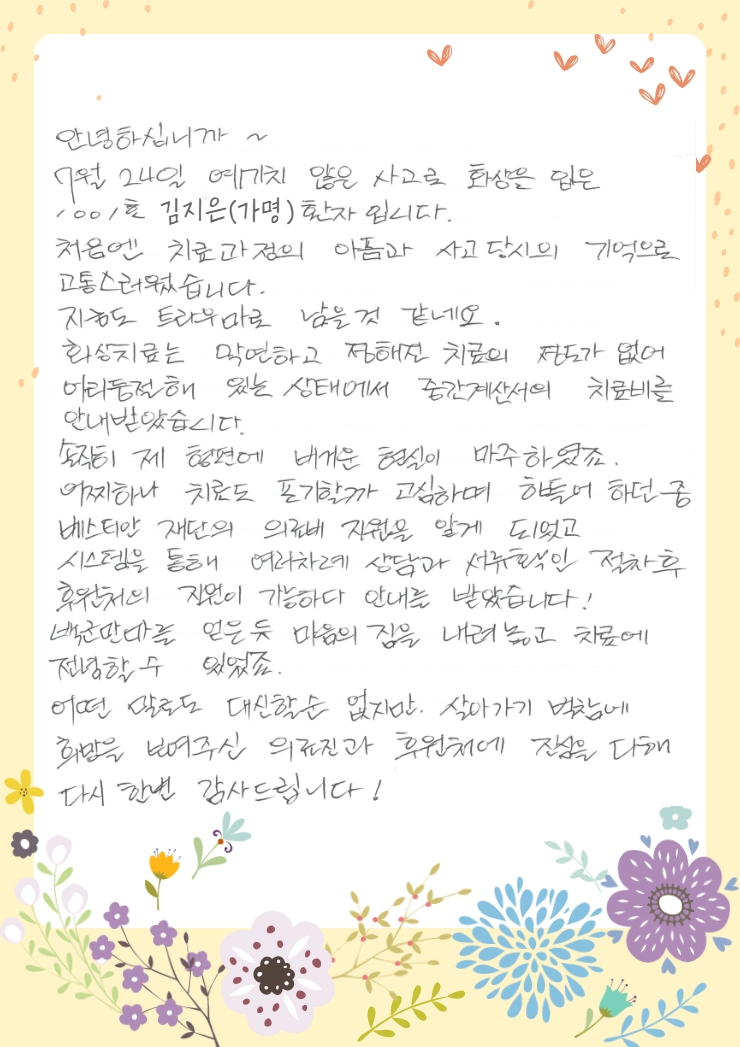 안녕하십니까 ~
7월 24일 예기치 않은 사고로 화상을 입은
1001호 김지은(가명) 환자 입니다.
처음엔 치료과정의 아픔과 사고 당시의 기억으로
고통스러웠습니다.
지금도 트라우마로 남을것 같네요.
화상치료는 막연하고 정해진 치료의 정도가 없어
어리둥절해 있는 상태에서 중간계산서의 치료비를
안내받았습니다.
솔직히 제 형편에 버거운 현실이 마주하였죠.
어찌하나 치료도 포기할까 고심하며 힘들어 하던 중
베스티안 재단의 의료비 지원을 알게 되었고
시스템을 통해 여러차례 상담과 서류확인 절차 후
후원처의 지원이 가능하다 안내를 받았습니다!
백군만마를 얻은 듯 마음의 짐을 내려 놓고 치료에
전념할 수 있었죠.
어떤 말로도 대신할순 없지만. 살아가기 벅참에
희망을 보여주신 의료진과 후원처에 진심을 다해
다시 한번 감사드립니다!